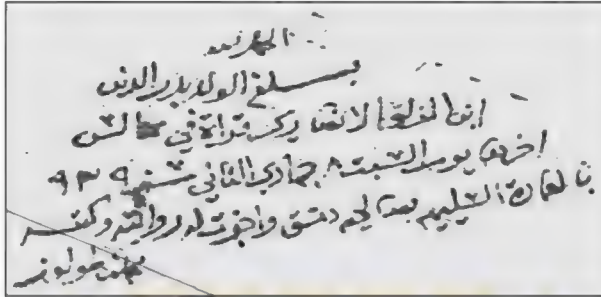 الحمد لله
بلغ الولد بدر الدين
ابن قراءة في مجالس
اخرها يوم السبت ٨ جمادى الثاني سنة ٩٣٩
بالعمارة السليمية دمشق واجزت له روايته وكتب
محمد بن طولون